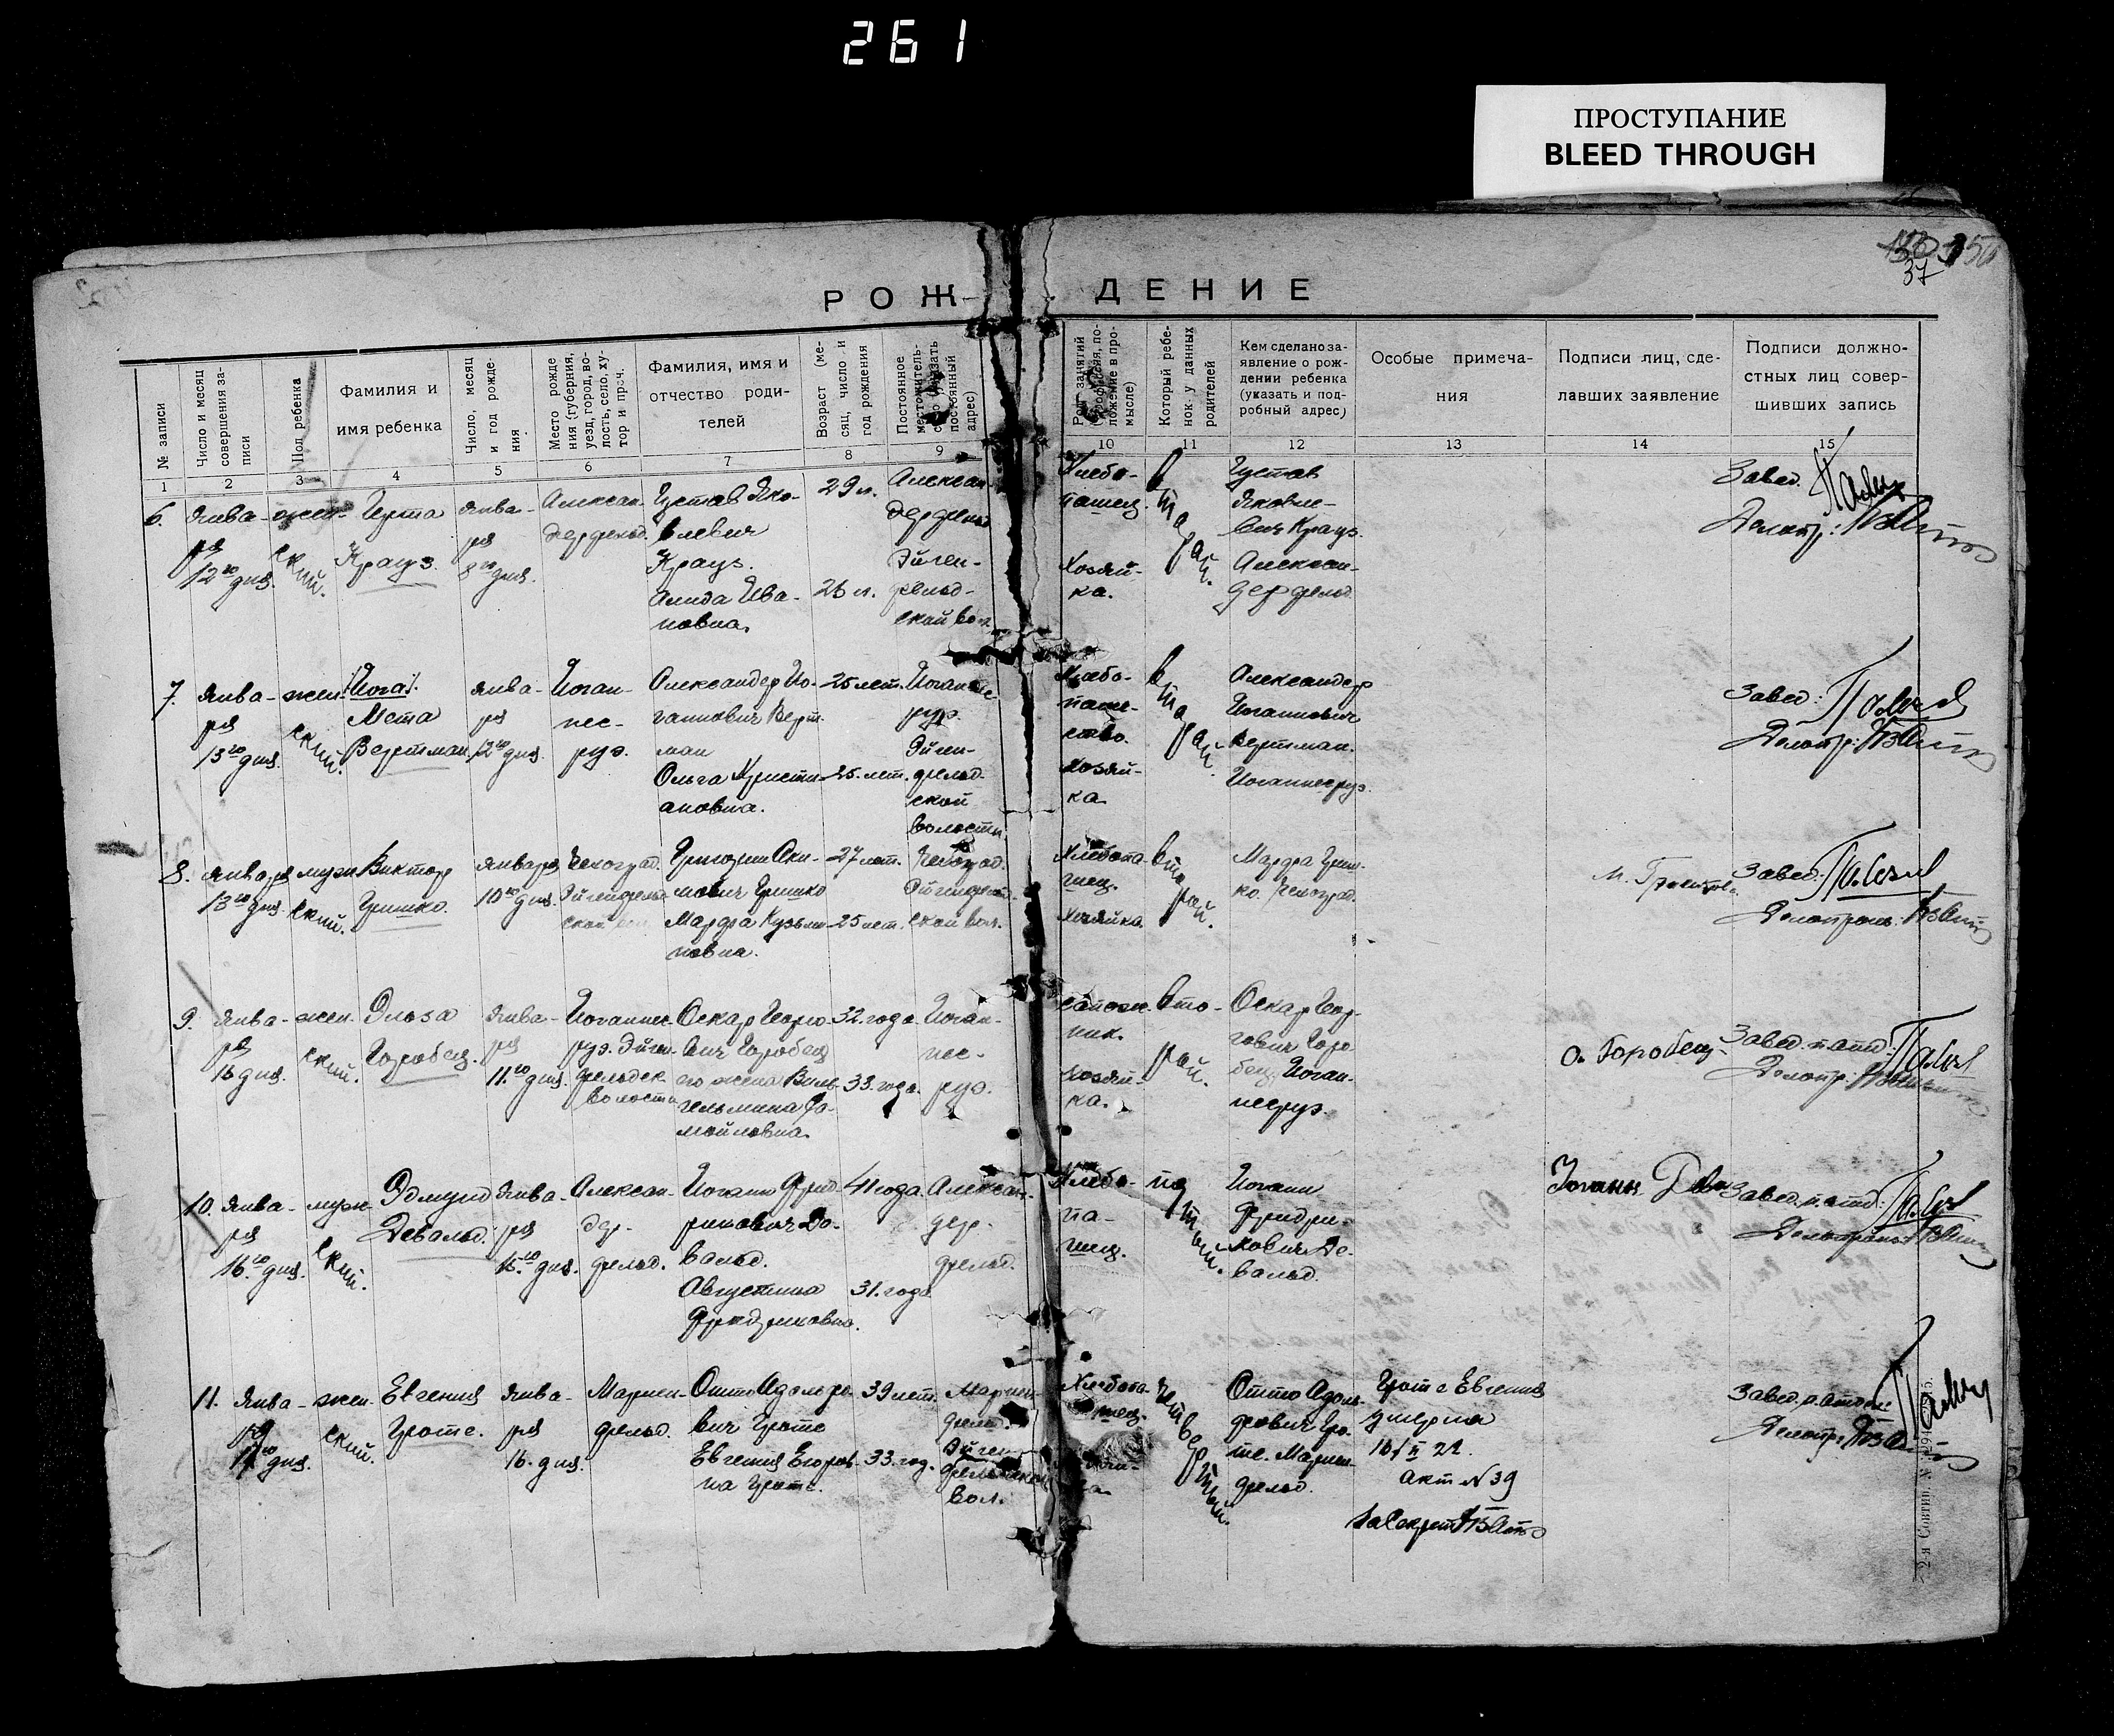 261
ПРОСТУПАНИЕ
BLEED THROUGH
37
РОЖДЕНИЕ
№ записи
Число и месяц совершения записи
Пол ребенка
Фамилия и
имя ребенка
Число, месяц и год рождения
Место рождения (губерния, уезд, город, волость, село, хутор и проч.
Фамилия, имя и
отчество роди-
телей
Возраст (месяц, число и год рождения
Постоянное местожительство (указать постоянный адрес)
Род занятий (профессия, положение в промысле)
Который ребенок у данных родителей
Кем сделано за-
явление о рож-
дении ребенка
(указать и под-
робный адрес)
Особые примеча-
ния
Подписи лиц, сде-
лавших заявление
Подписи должно-
стных лиц совер-
шивших запись
1 2 3 4 5 6 7 8 9 10 11 12 13 14 15
6.
Янва-
ря
12го дня.
жен-
ский.
Герта
Крауз.
янва-
ря
8го дня.
Алексан-
дерфельд.
Густав Яко-
влевич
Крауз.
Алида Ива-
новна.
29 л.
26 л.
Алексан-
дерфельд
Эйген-
фельд-
ской вол.
Хлебо-
пашец.
Хозяй-
ка.
вторай.
Густав
Яковле-
вич Крауз.
Алексан-
дерфельд.
Завед.
Делопр:
7.
Янва-
ря
13го дня.
жен-
ский.
Мета
Вертман.
янва-
ря
12го дня.
Иоган-
нес-
руэ.
Александер Ио-
ганнович Верт-
ман
Ольга Кристи-
ановна.
25 лет.
25. лет.
Иоганнес-
руэ.
Эйген-
фельд.
ской
волости.
Хлебо-
паше-
ство.
Хозяй-
ка.
вторай.
Александер
Иоганнович
Вертман.
Иоганнесруэ.
Завед:
Делопр:
8.
Января
13го дня
муж
ский.
Виктор
Гришко.
Января
10го дня.
Чехоград.
Эйгенфельд
ской вол.
мович Гришко
Марфа Кузьми-
новна.
27 лет.
25 лет.
Чехоград.
Эйгенфельд-
ской вол.
Хлебопа-
шец.
Хозяйка.
второй.
Марфа Гриш-
ко. Чехоград.
Завед:
Делопроиз.
9.
Янва-
ря
16 дня.
жен-
ский.
Эльза
Горобец.
янва-
ря
11.го дня.
Иоганнес-
руэ. Эйген-
фельдск.
волости
Оскар Георго-
вич Горобец
его жена Виль-
гельмина Са-
мойловна.
32. года.
33. года.
Иоган-
нес-
руэ.
Сапож-
ник.
Хозяй-
ка.
вто-
рой.
Оскар Геор-
гович Горо-
бец. Иоган-
несруэ.
О. Горобец
Завед. п. отд:
Делопр:
10.
Янва-
ря
16.го дня.
муж-
ский.
Эдмунд
Девальд.
Янва-
ря
15.го дня.
Алексан-
дер-
фельд.
Иоганн Фрид-
рихович Де-
вальд.
Августина
Фридриховна.
41 года.
31. года
Алексан-
дер-
фельд.
Хлебо-
па-
шец.
пятый.
Иоганн
Фридри-
хович Де-
вальд.
Завед. п. отд:
Делопроиз:
11.
Янва-
ря
17го дня.
жен-
ский.
Евгения
Гроте.
Янва-
ря
16. дня.
Мариен-
фельд.
Отто Адольфо-
вич Гроте
Евгения Егоров-
на Гроте.
39 лет.
33. год.
Мариен-
фельд.
Эйген-
фельдской
вол.
Хлебопа-
шец.
четвертый.
Отто Адоль-
фович Гро-
те. Мариен-
фельд.
Гроте Евгения
умерла
16/II 22.
акт № 39
Завед. п. отд:
Делопр: